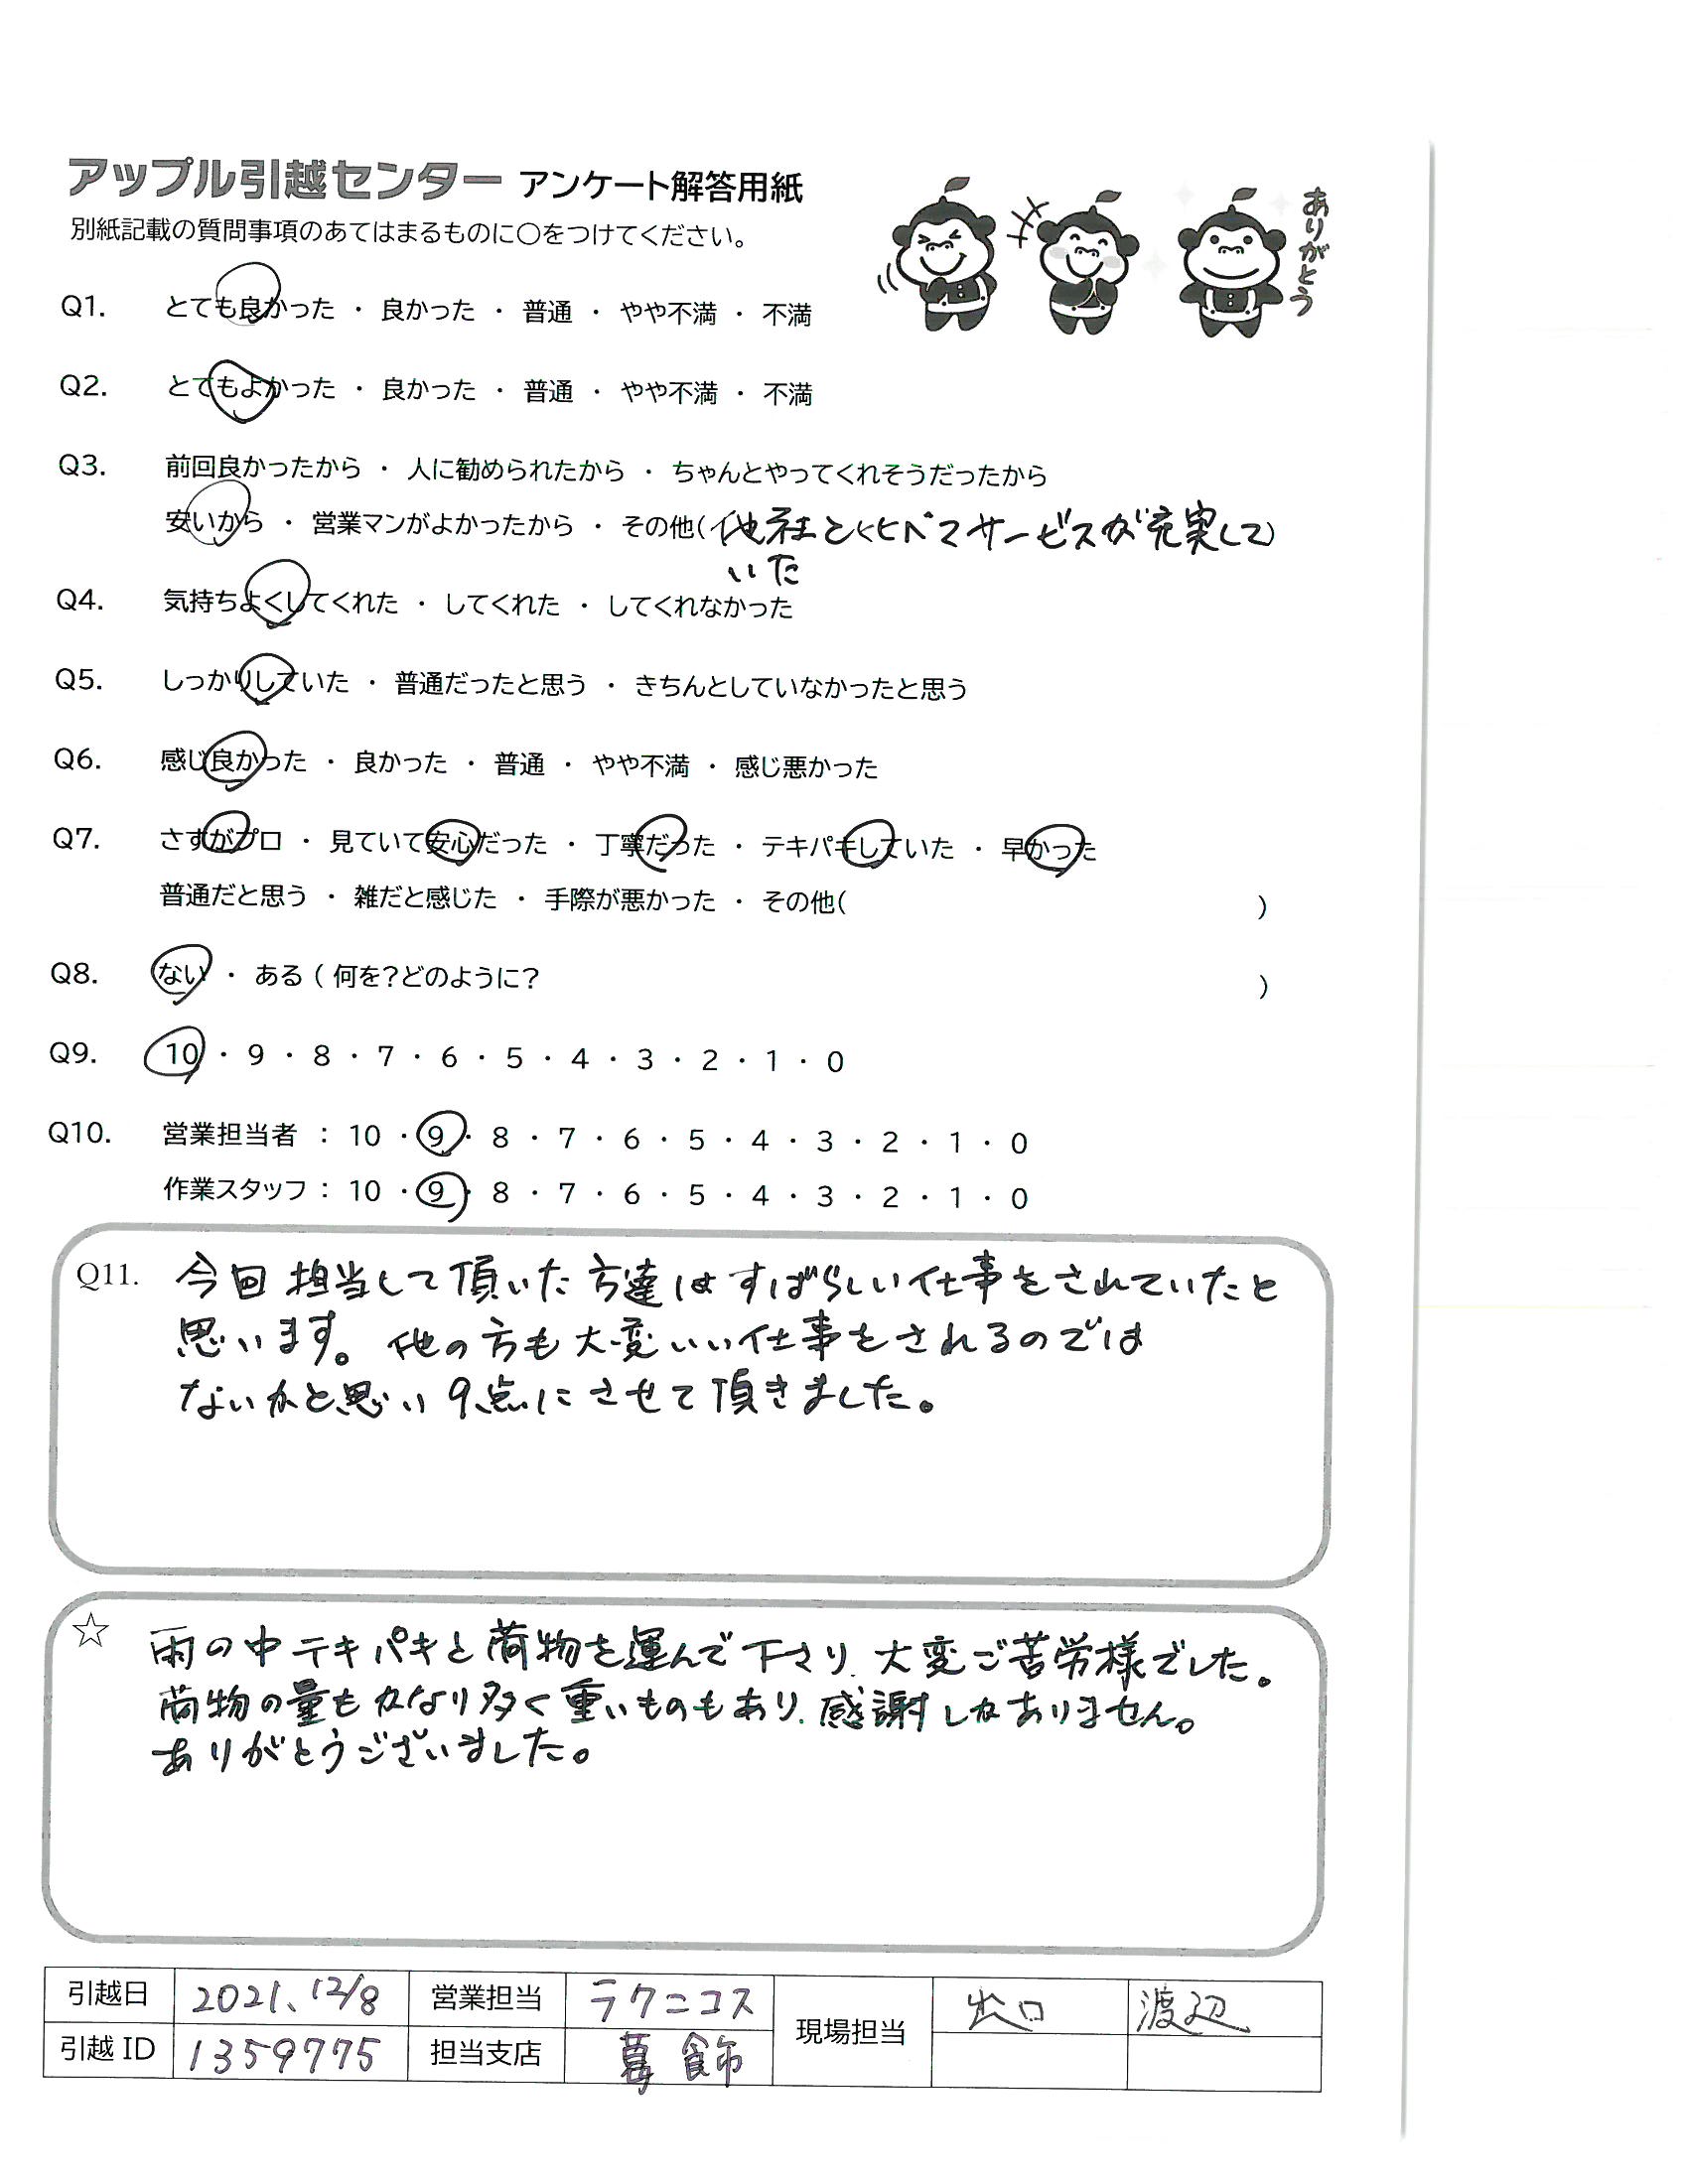 アップル引越センター アンケート解答用紙
別紙記載の質問事項のあてはまるものに○をつけてください。
ありがとう
Q1. とても良かった ・ 良かった ・ 普通 ・ やや不満 ・ 不満
Q2. とてもよかった ・ 良かった ・ 普通 ・ やや不満 ・ 不満
Q3. 前回良かったから ・ 人に勧められたから ・ ちゃんとやってくれそうだったから
安いから ・ 営業マンがよかったから ・ その他(他社とくらべてサービスが充実して)
いた
Q4. 気持ちよくしてくれた ・ してくれた ・ してくれなかった
Q5. しっかりしていた ・ 普通だったと思う ・ きちんとしていなかったと思う
Q6. 感じ良かった ・ 良かった ・ 普通 ・ やや不満 ・ 感じ悪かった
Q7. さすがプロ ・ 見ていて安心だった ・ 丁寧だった ・ テキパキしていた ・ 早かった
普通だと思う ・ 雑だと感じた ・ 手際が悪かった ・ その他( )
Q8. ない ・ ある ( 何を?どのように? )
Q9. 10 ・ 9 ・ 8 ・ 7 ・ 6 ・ 5 ・ 4 ・ 3 ・ 2 ・ 1 ・ 0
Q10. 営業担当者 : 10 ・ 9 ・ 8 ・ 7 ・ 6 ・ 5 ・ 4 ・ 3 ・ 2 ・ 1 ・ 0
作業スタッフ : 10 ・ 9 ・ 8 ・ 7 ・ 6 ・ 5 ・ 4 ・ 3 ・ 2 ・ 1 ・ 0
Q11. 今回担当して頂いた方達はすばらしい仕事をされていたと
思います。他の方も大変いい仕事をされるのでは
ないかと思い9点にさせて頂きました。
☆ 雨の中テキパキと荷物を運んで下さり、大変ご苦労様でした。
荷物の量もかなり多く重いものもあり、感謝しかありません。
ありがとうございました。
引越日 2021、12/8 営業担当 ラクニコス 現場担当 出口 渡辺
引越ID 1359775 担当支店 葛飾